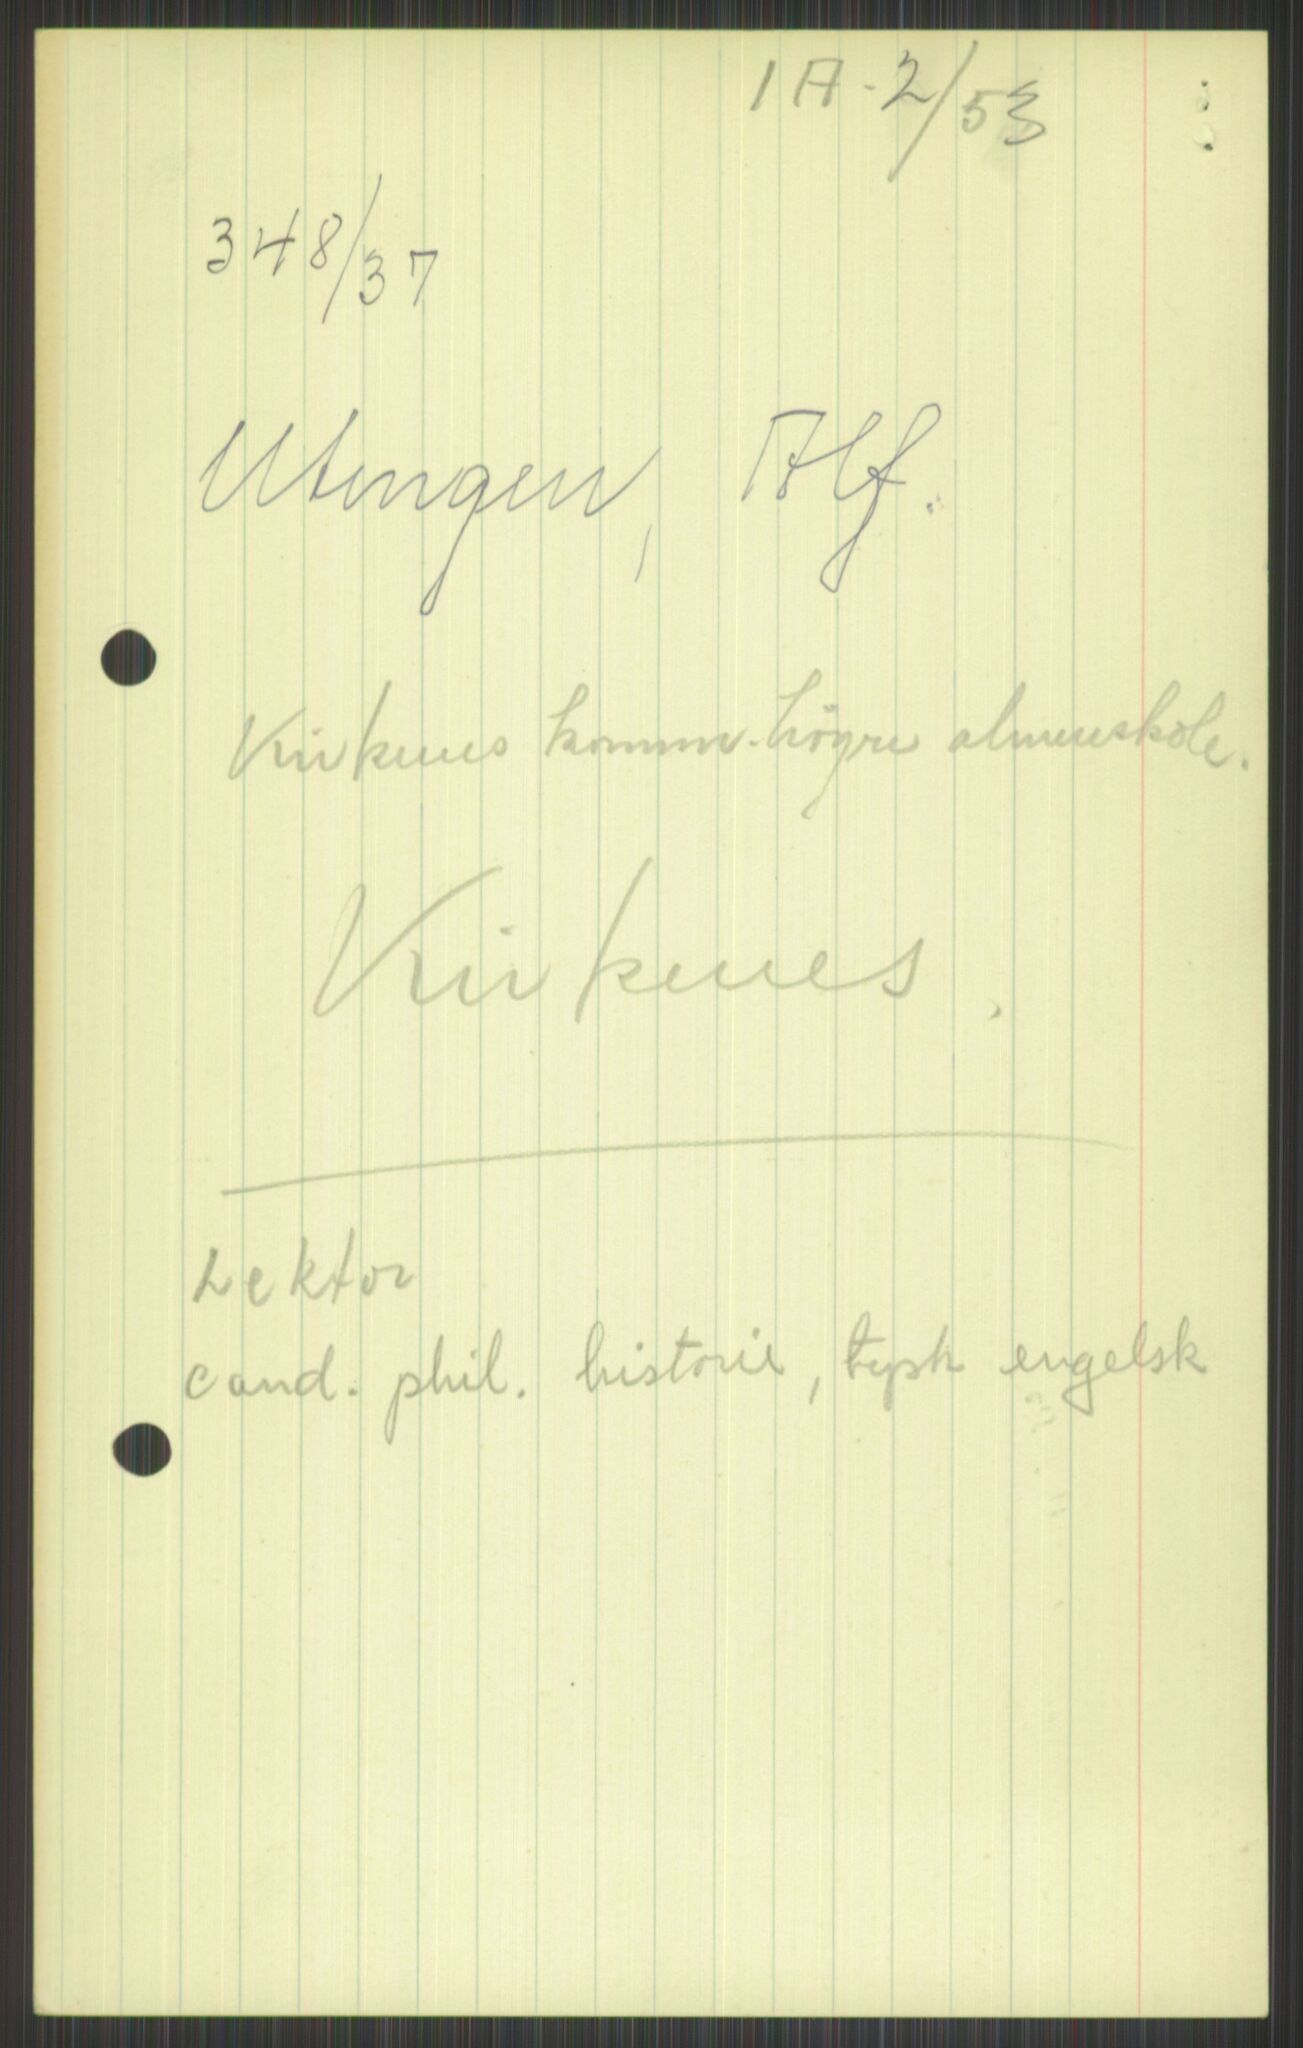 1A-2/53
348/37
Utengen, Alf.
Kirkenes komm. högre almenskole.
Kirkenes.
Lektor
cand. phil. historie, tysk engelsk